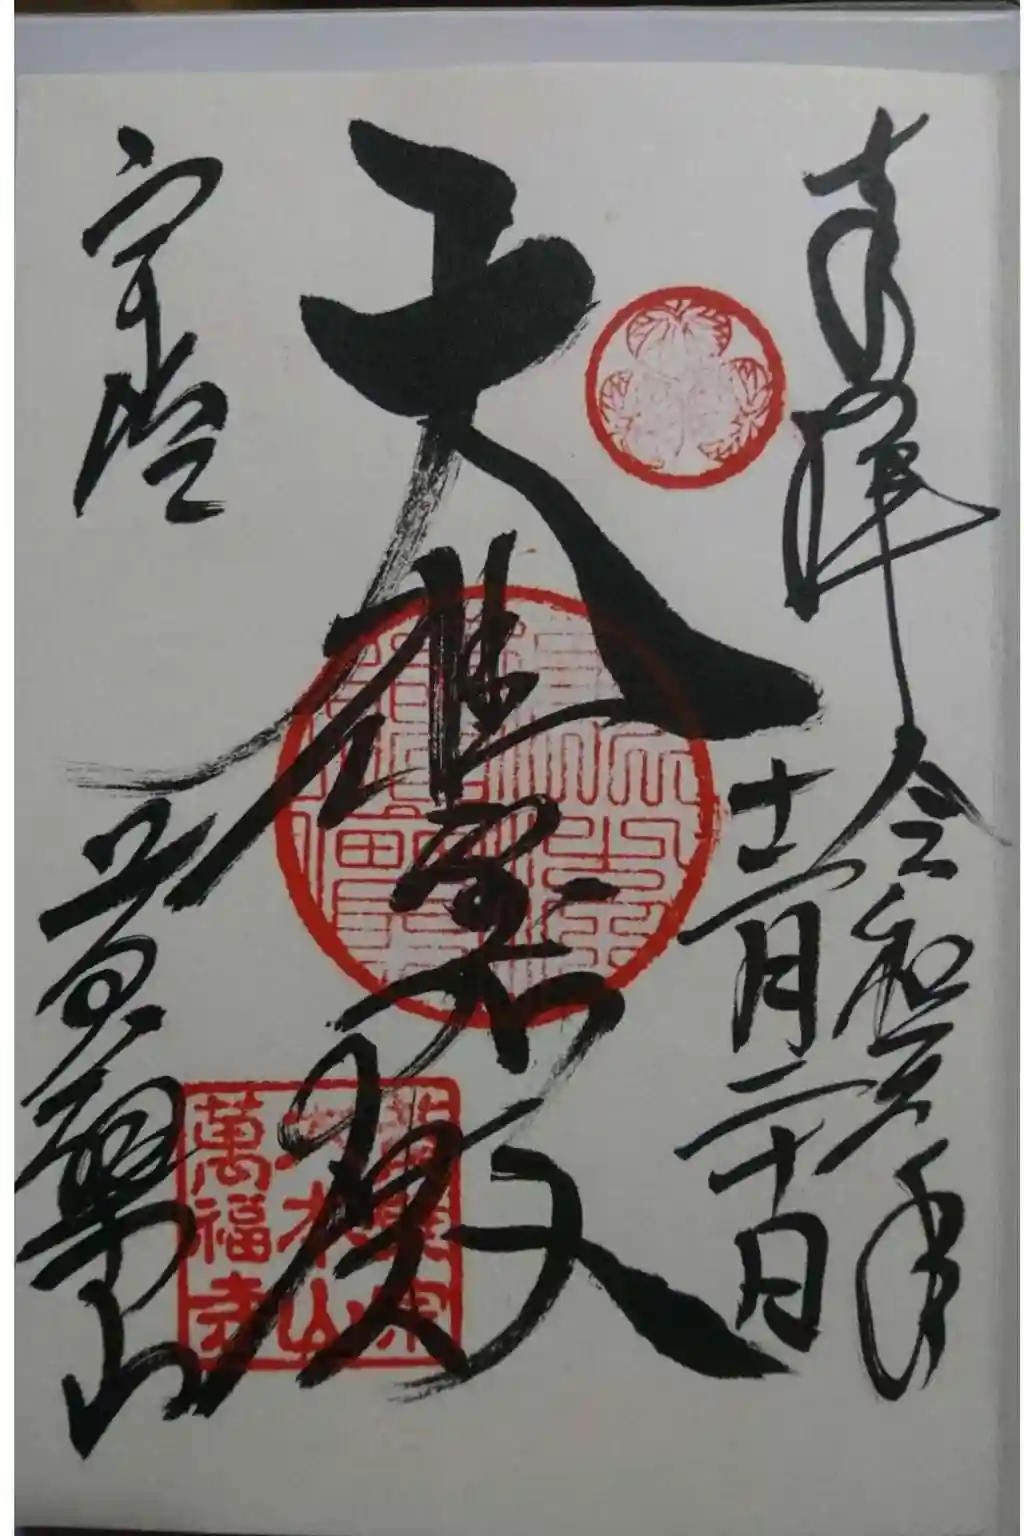 奉拝
令和
年
十一月二十日
大雄寳殿
宇治
黄檗山
黄檗宗
大本山
萬福寺